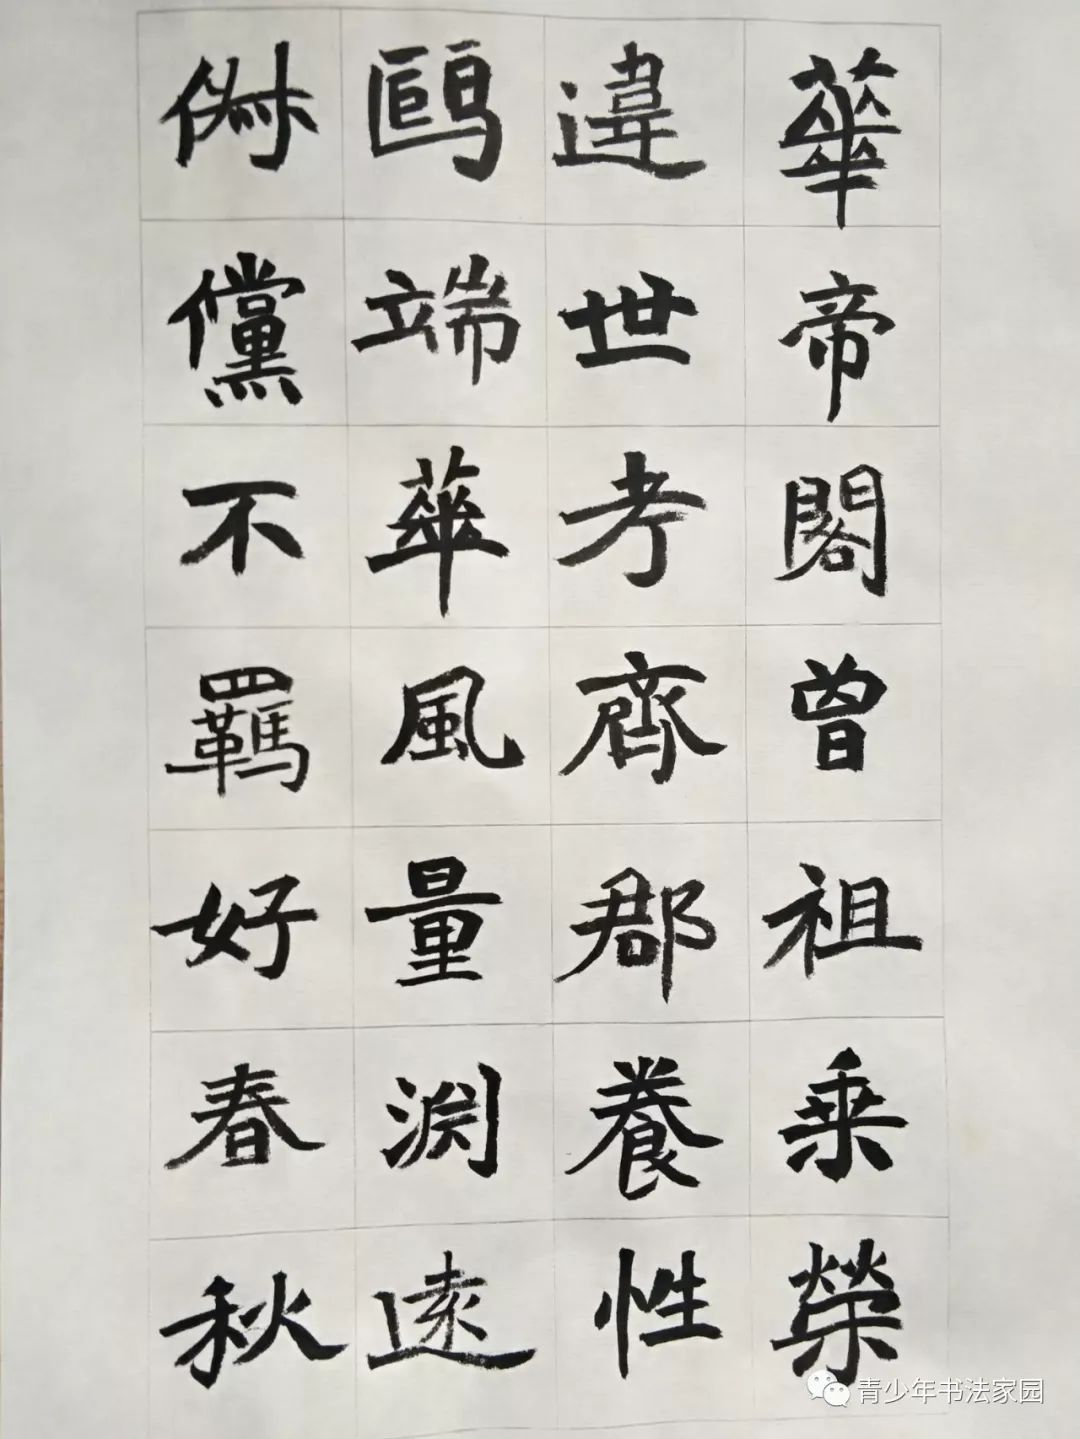 華帝閣曾祖乗榮
違世考齊郡養性
鷗端華風量渕遠
儛儻不羈好春秋
青少年书法家园